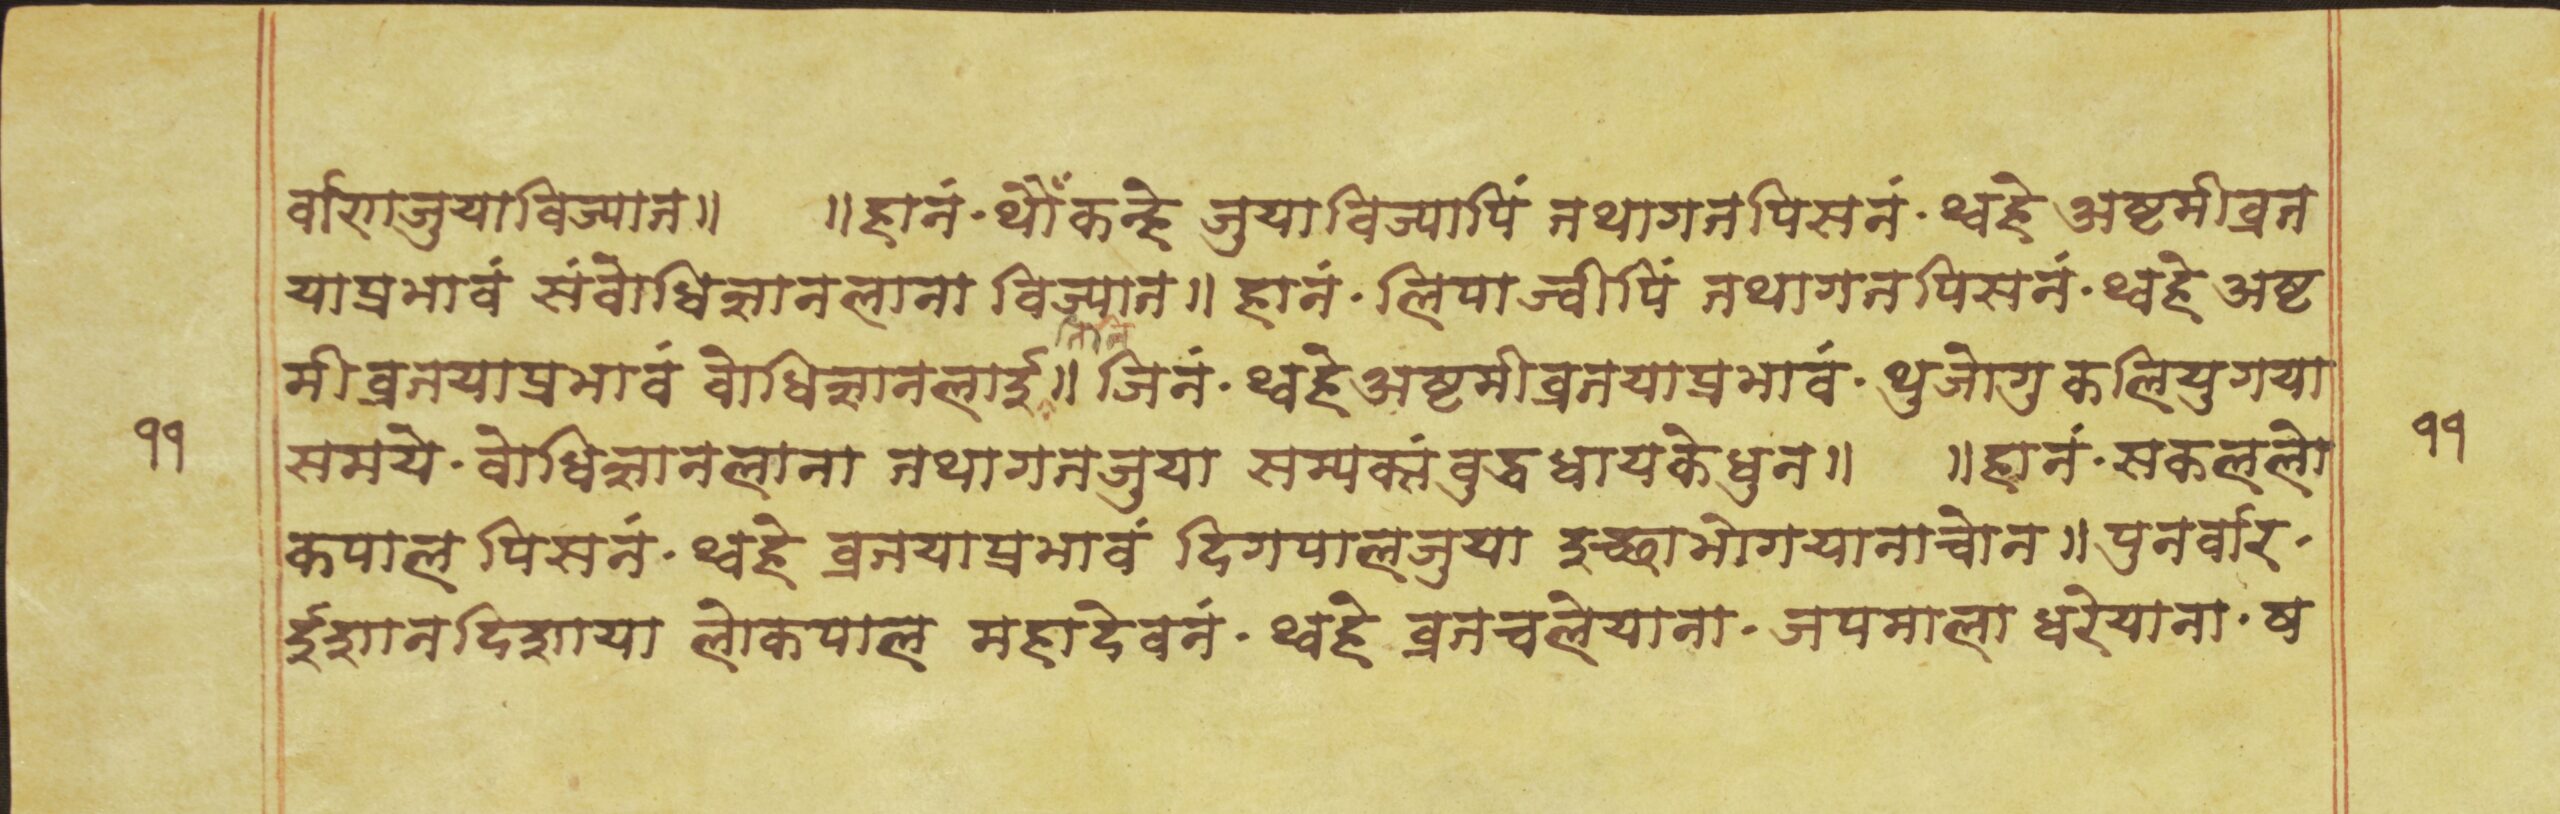 र्वाणजुयाविज्यात॥ ॥हानं·थौंकन्हे जुयाविज्यापिं तथागतपिसनं·थ्वहे अष्टमीव्रत
याप्रभावं संवोधिज्ञानलाना विज्यात॥ हानं·लिपाज्वीपिं तथागतपिसनं·थ्वहे अष्ट
मीव्रतयाप्रभावं वोधिज्ञानलाई॥ जिनं·थ्वहेअष्टमीव्रतयाप्रभावं·थुजोगु कलियुगया
११ समये·वोधिज्ञानलाना तथागतजुया सम्यक्संवुद्धधायकेधुन॥ ॥हानं·सकललो ११
कपाल पिसनं·थ्वहे व्रतयाप्रभावं दिगपालजुया इच्छाभोगयानाचोन॥पुनर्वार·
ईशानदिशाया लोकपाल महादेवनं·थ्वहे व्रतचलेयाना·जपमाला धरेयाना·ष